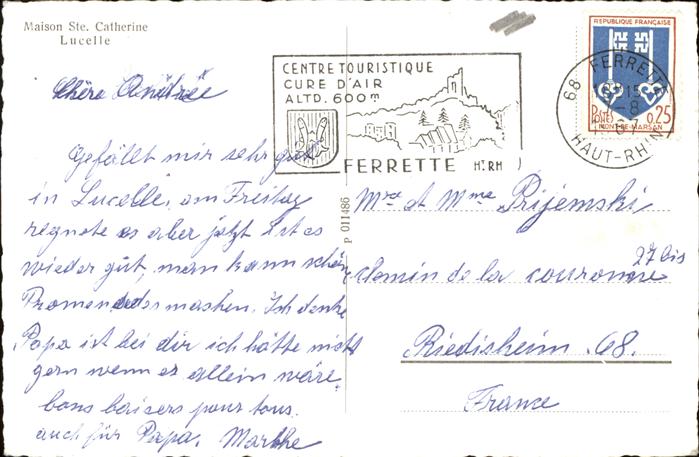 Maison Ste. Catherine
Lucelle
CENTRE TOURISTIQUE
CURE D'AIR
ALTD. 600m
FERRETTE Ht RH
REPUBLIQUE FRANÇAISE
POSTES 0,25
MONT-DE-MARSAN
68 FERRETTE
HAUT-RHIN
P 011486
Chère Andrée
Gefällt mir sehr gut
in Lucelle, am Freitag
regnete es aber jetzt ist es
wieder gut, man kann schön
Promenades mashen. Ich denke
Papa ist bei dir ich hätte nicht
gern wenn er allein wäre.
bons baisers pour tous.
auch für Papa. Marthe
Mr et Mme Prijemski
27 bis
chemin de la couronne
Riedisheim 68.
France